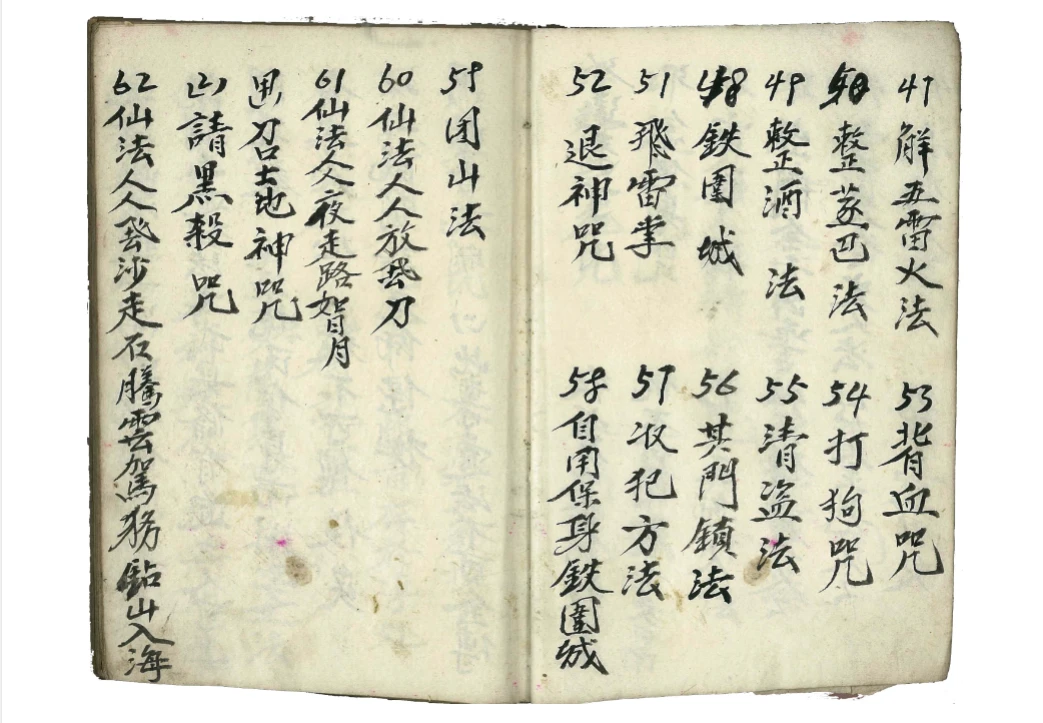 47 解五雷火法
整荄巴法
49 整酒法
48 鉄圍城
51 飛雷掌
52 退神咒
53 背血咒
54 打狗咒
55 清盗法
56 其門鎖法
57 收犯方法
58 自用保身鉄圍城
59 团山法
60 仙法人人放飛刀
61 仙法人夜走路賀月
刀召土地神咒
請黑殺咒
62 仙法人人飛沙走石騰雲駕務鉆山入海